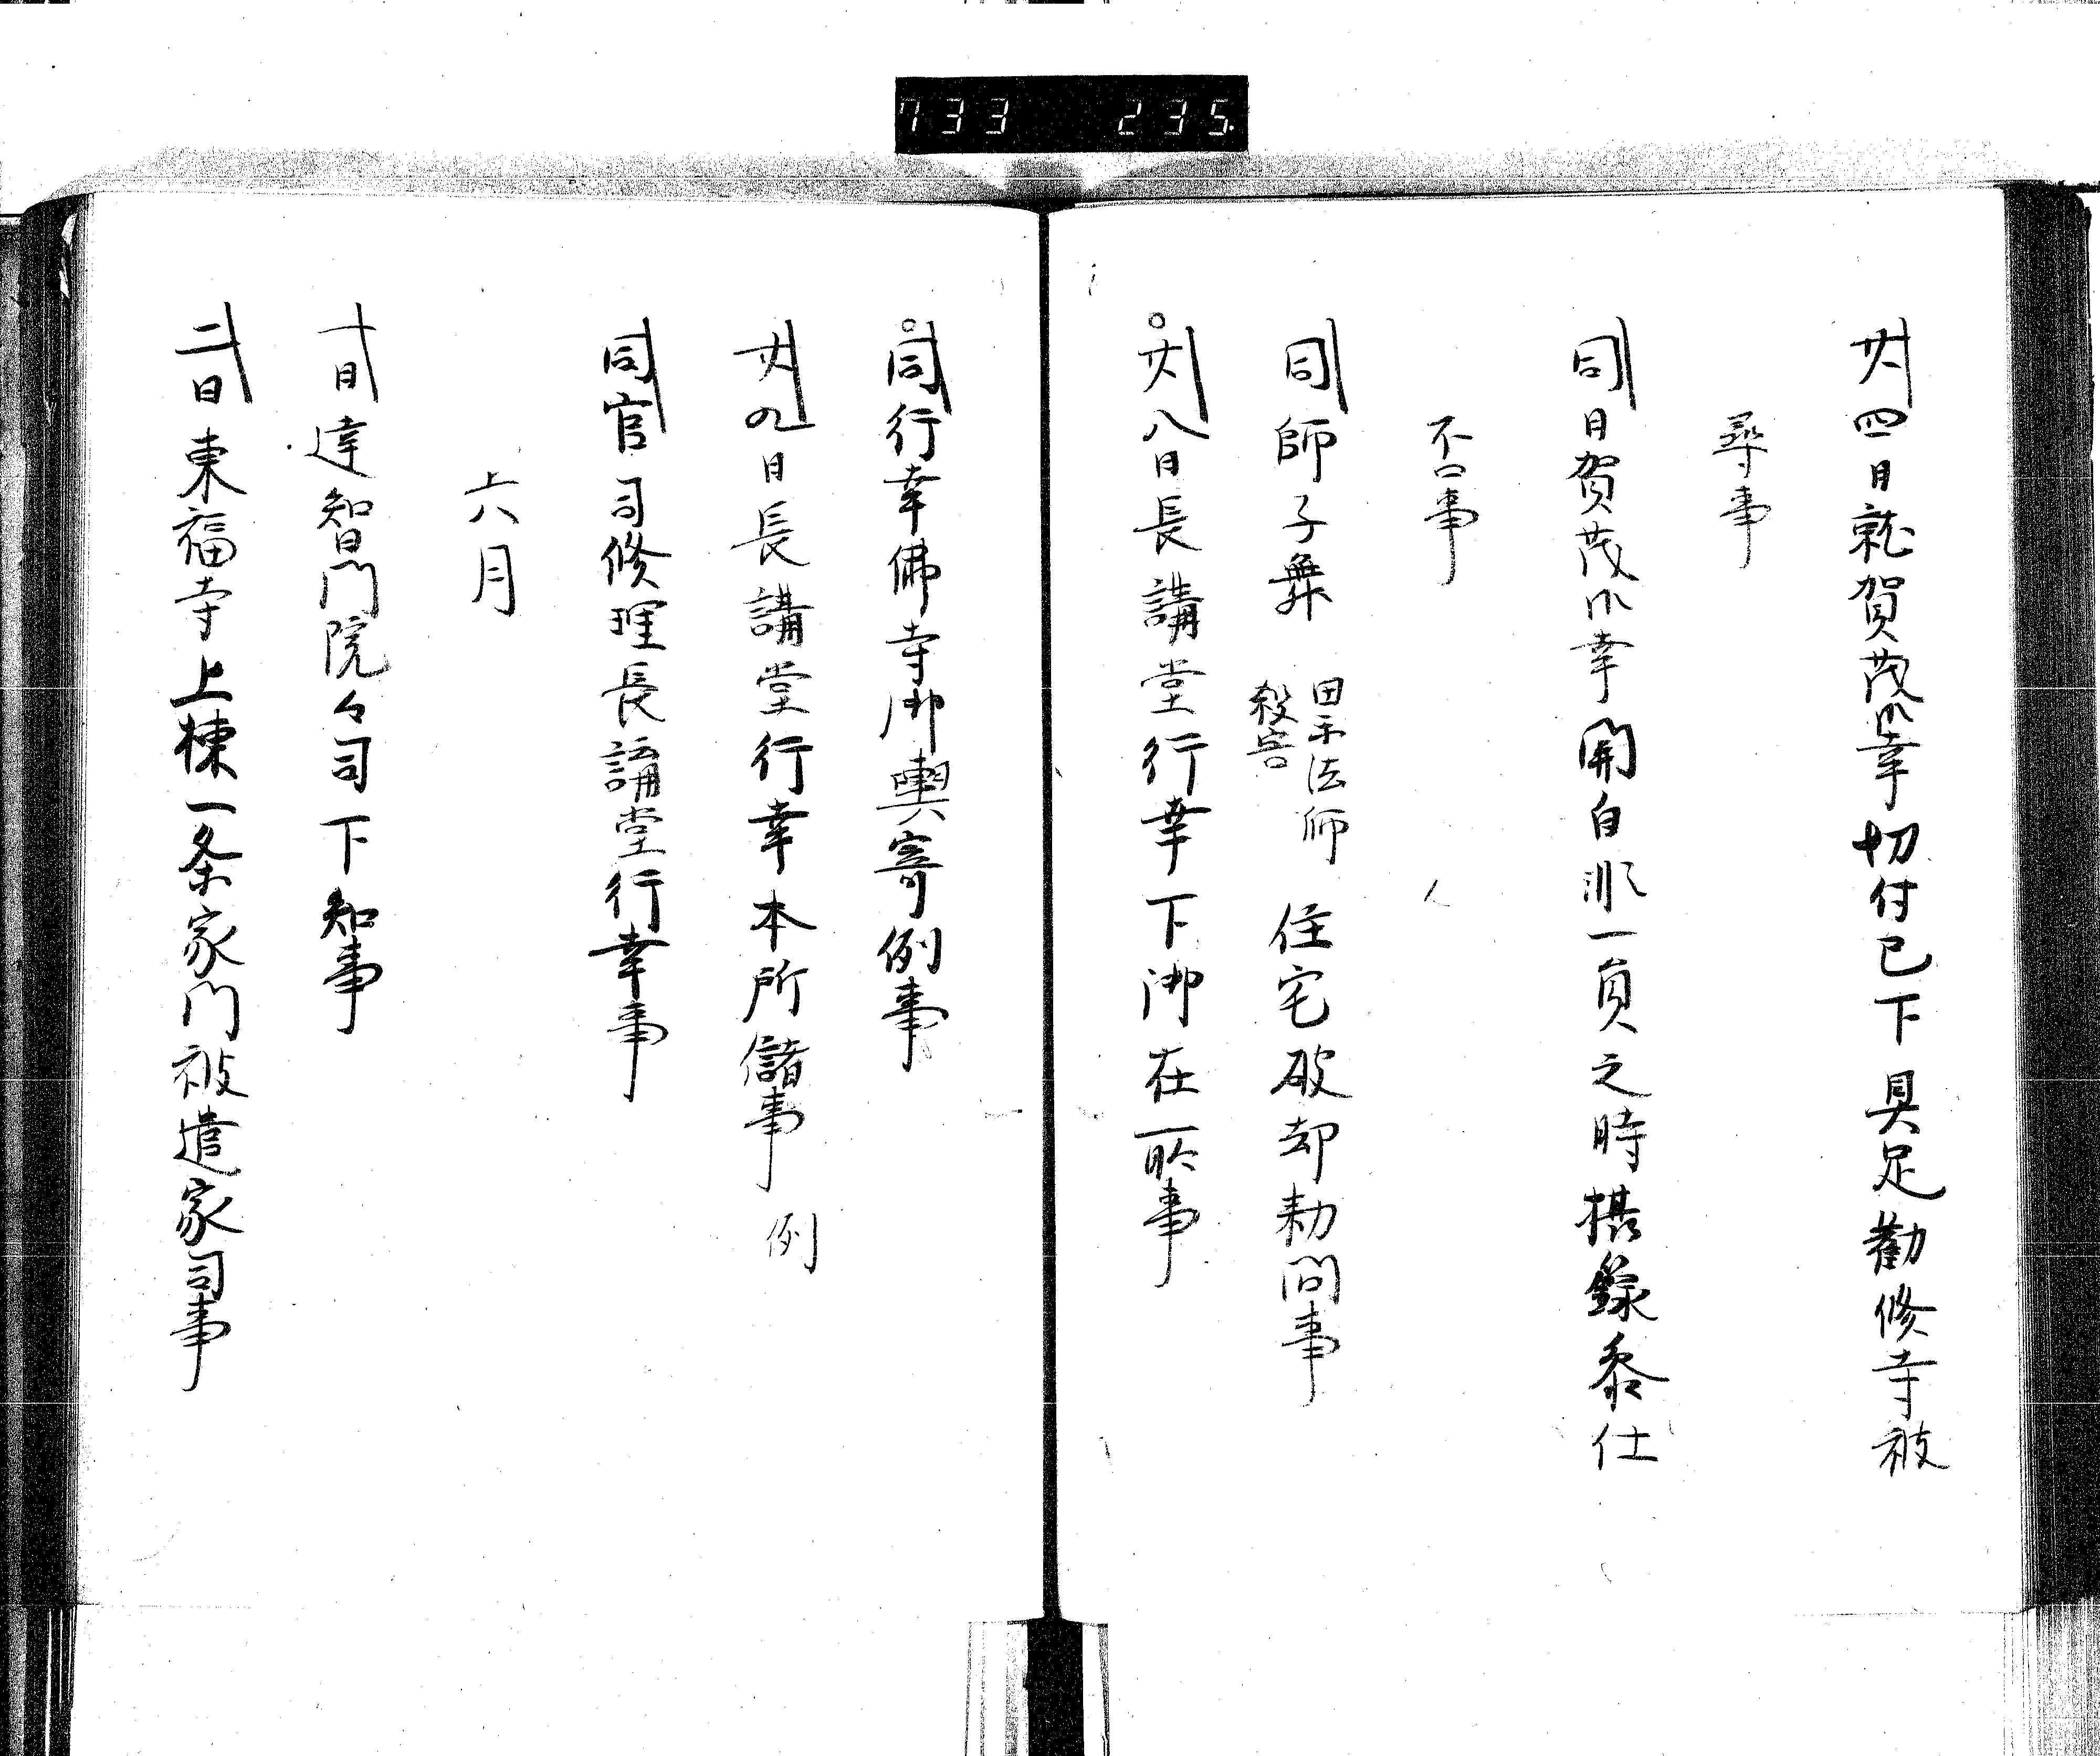 733 235.
廿四日就賀茂御幸切付已下具足勸修寺被
尋事
同日賀茂御幸関白非一員之時摂籙参仕
不口事
同師子舞 田楽法師 殺害 住宅破却勅問事
廿八日長講堂行幸下御在所事
同行幸佛寺御輿寄例事
廿九日長講堂行幸本所儲事 例
同官司修理長講堂行幸事
六月
一日達智門院々司下知事
二日東福寺上棟一条家門被遣家司事